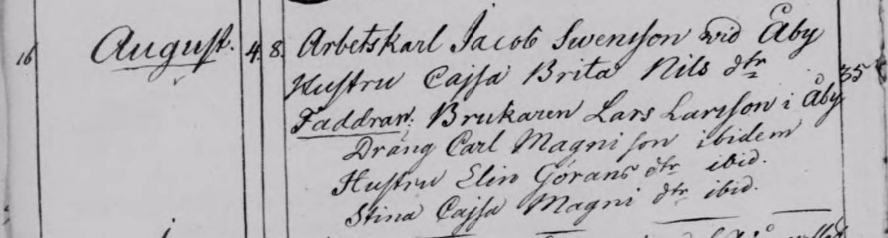 16 August. 4. 8. Arbetskarl Jacob Swensson vid Åby
Hustru Cajsa Brita Nils dtr 35
Faddrar: Brukaren Lars Larsson i Åby
Dräng Carl Magnisson ibidem
Hustru Elin Görans dtr ibid.
Stina Cajsa Magni dtr ibid.